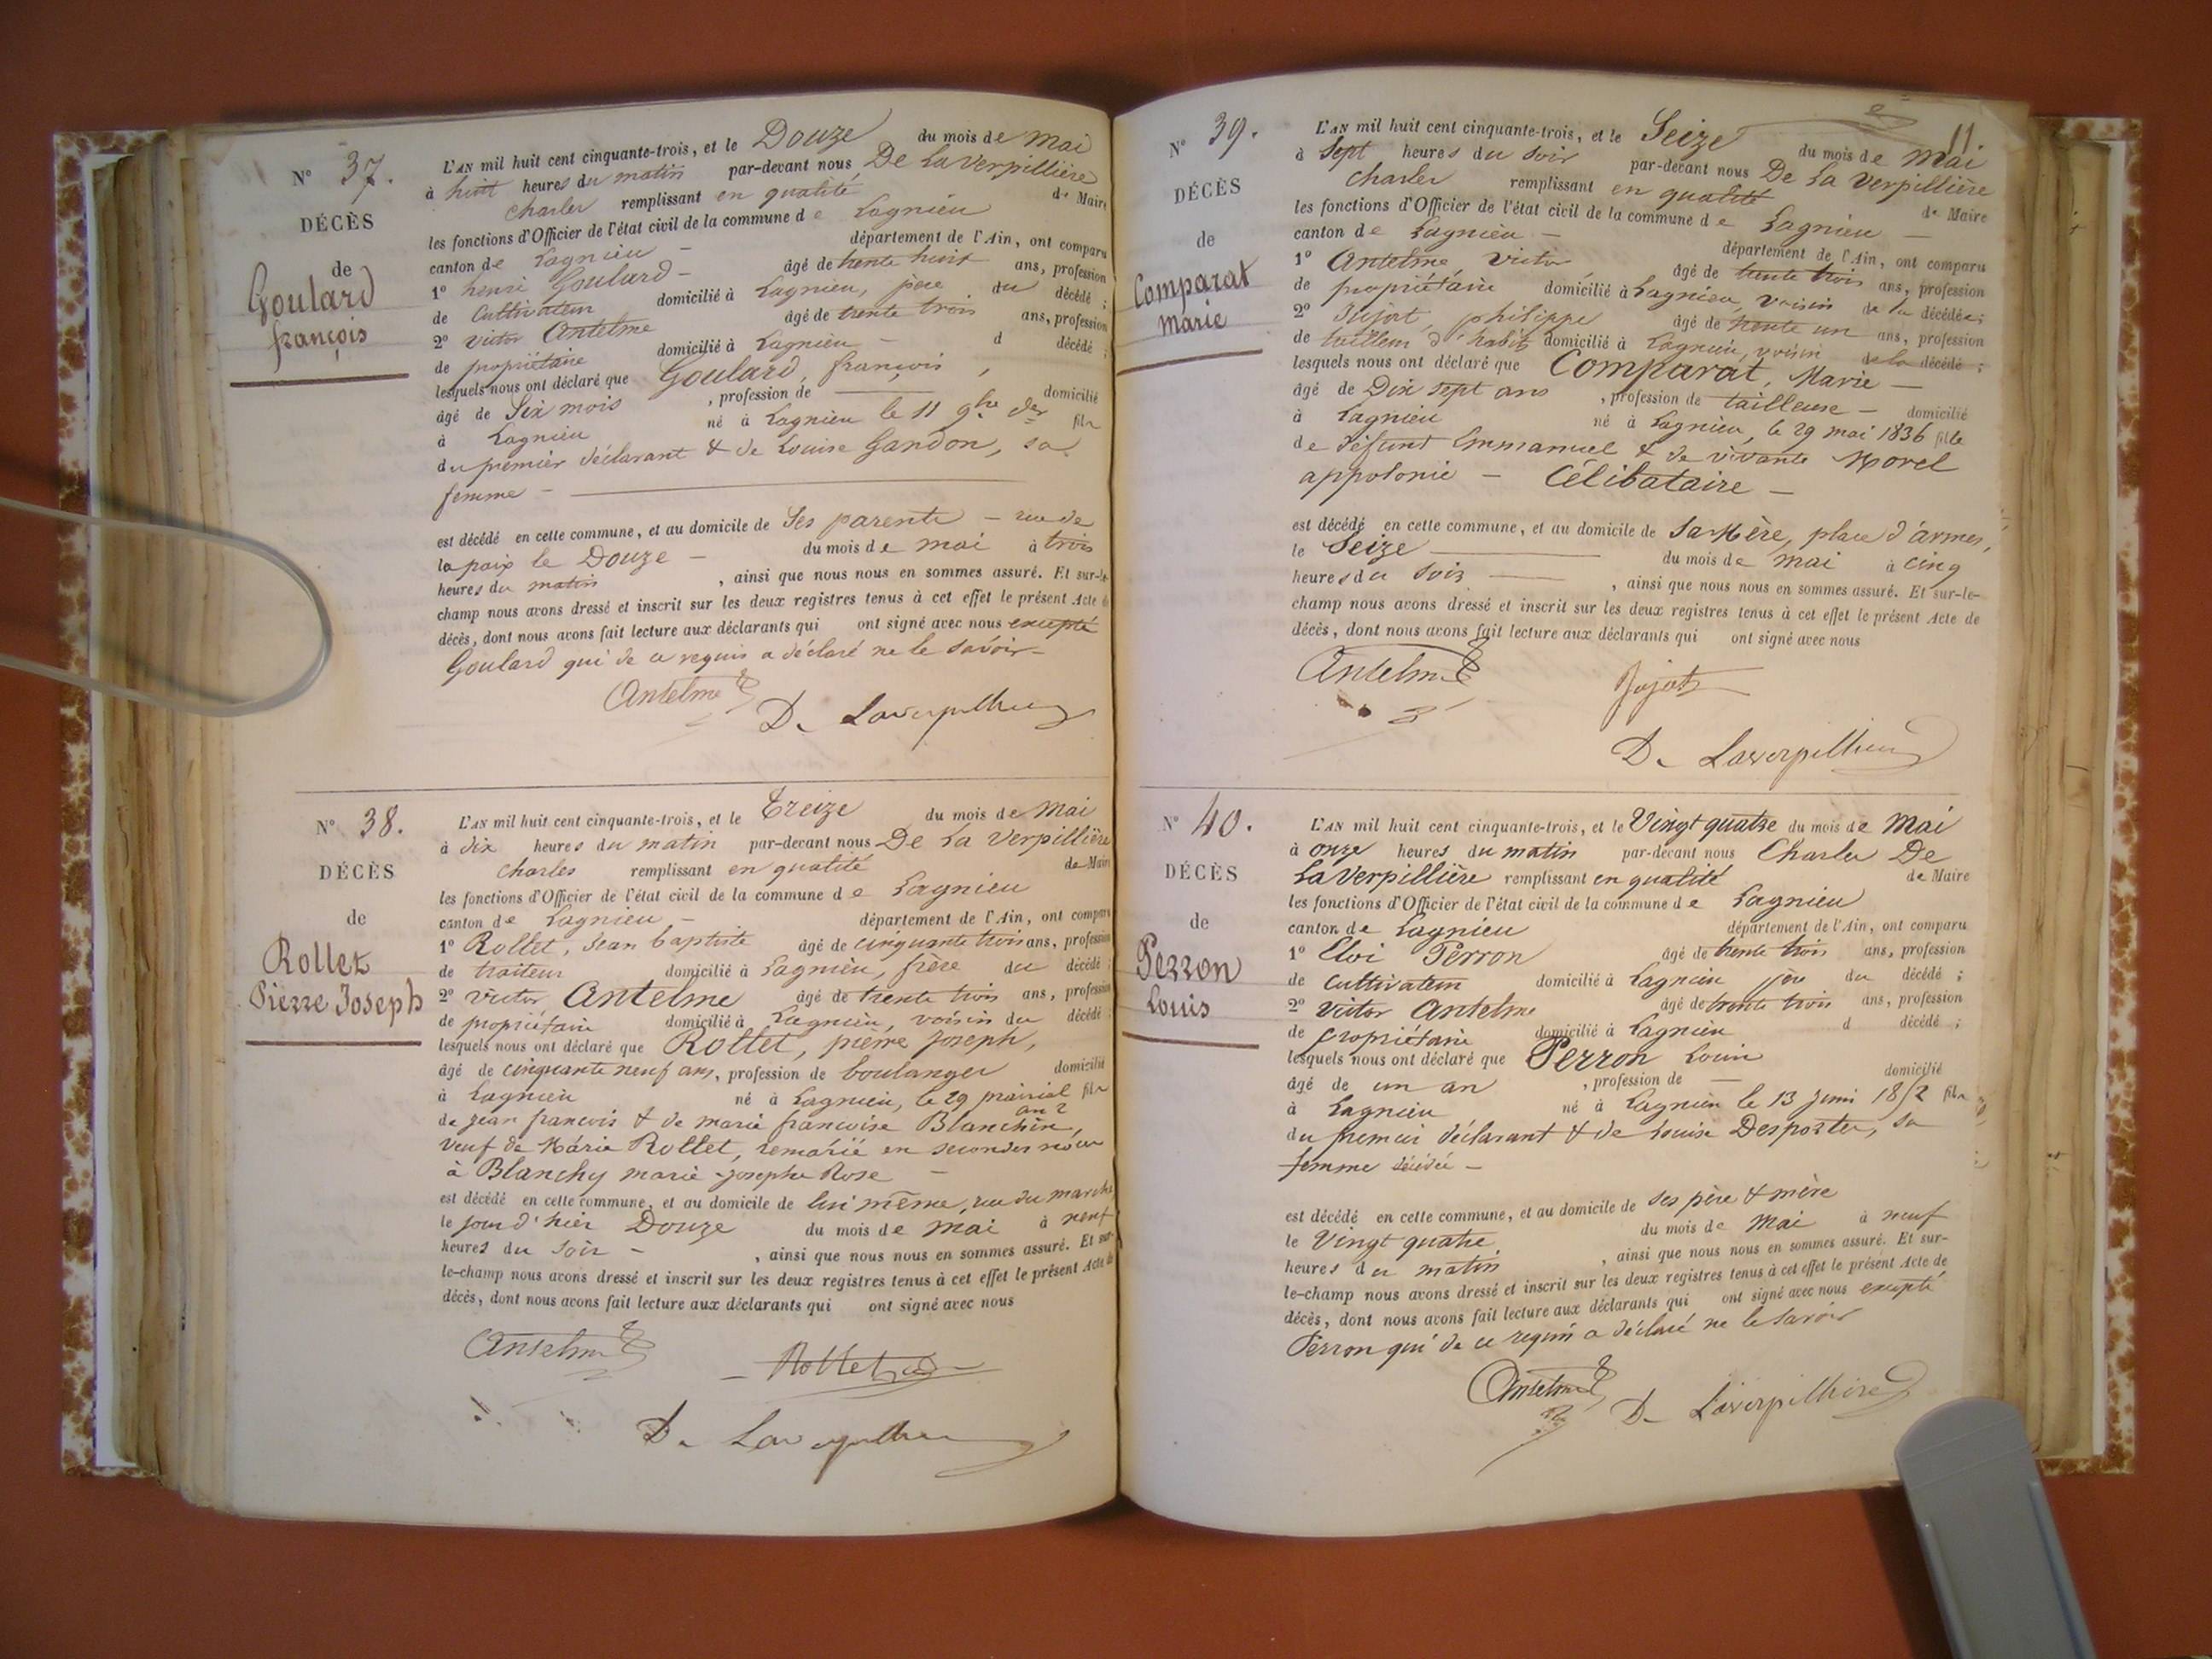 N° 37.
DÉCÈS
de
Goulard
françois
L'AN mil huit cent cinquante-trois, et le Douze du mois de mai
à huit heures du matin par-devant nous De La Verpillière
charles remplissant en qualité de Maire
les fonctions d'Officier de l'état civil de la commune de Lagnieu
canton de Lagnieu – département de l'Ain, ont comparu
1° henri Goulard – âgé de trente huit ans, profession
de Cultivateur domicilié à Lagnieu, père du décédé ;
2° victor Antelme âgé de trente trois ans, profession
de propriétaire domicilié à Lagnieu – d décédé ;
lesquels nous ont déclaré que Goulard, françois,
âgé de Six mois , profession de — domicilié
à Lagnieu né à Lagnieu le 11 9bre der fils
du premier déclarant & de Louise Gandon, sa
femme –
est décédé en cette commune, et au domicile de Ses parents – rue de
la paix le Douze – du mois de mai à trois
heures du matin , ainsi que nous nous en sommes assuré. Et sur-le-
champ nous avons dressé et inscrit sur les deux registres tenus à cet effet le présent Acte de
décès, dont nous avons fait lecture aux déclarants qui ont signé avec nous excepté
Goulard qui de ce requis a déclaré ne le savoir –
Antelme D. Laverpilliere
N° 38.
DÉCÈS
de
Rollet
Pierre Joseph
L'AN mil huit cent cinquante-trois, et le Treize du mois de mai
à dix heures du matin par-devant nous De La Verpillière
charles remplissant en qualité de Maire
les fonctions d'Officier de l'état civil de la commune de Lagnieu
canton de Lagnieu – département de l'Ain, ont comparu
1° Rollet, Jean baptiste âgé de cinquante trois ans, profession
de traiteur domicilié à Lagnieu, frère du décédé ;
2° victor Antelme âgé de trente trois ans, profession
de propriétaire domicilié à Lagnieu, voisin du décédé ;
lesquels nous ont déclaré que Rollet, pierre joseph,
âgé de cinquante neuf ans, profession de boulanger domicilié
à Lagnieu né à Lagnieu, le 29 prairial an 2 fils
de jean francois & de marie francoise Blanchin,
veuf de Marie Rollet, remarié en secondes noces
à Blanchy marie-josephe Rose –
est décédé en cette commune, et au domicile de lui même, rue du marché
le jour d'hier Douze du mois de mai à neuf
heures du soir – , ainsi que nous nous en sommes assuré. Et sur-
le-champ nous avons dressé et inscrit sur les deux registres tenus à cet effet le présent Acte de
décès, dont nous avons fait lecture aux déclarants qui ont signé avec nous
Antelme – Rollet
D. Laverpilliere
11
N° 39.
DÉCÈS
de
Comparat
Marie
L'AN mil huit cent cinquante-trois, et le Seize du mois de mai
à Sept heures du soir par-devant nous De La Verpillière
charles remplissant en qualité de Maire
les fonctions d'Officier de l'état civil de la commune de Lagnieu –
canton de Lagnieu – département de l'Ain, ont comparu
1° Antelme victor âgé de trente trois ans, profession
de propriétaire domicilié à Lagnieu, voisin de la décédée ;
2° Jujat philippe âgé de trente un ans, profession
de tailleur d'habits domicilié à Lagnieu, voisin de la décédé ;
lesquels nous ont déclaré que Comparat, Marie –
âgé de Dix sept ans , profession de tailleuse – domicilié
à Lagnieu né à Lagnieu, le 29 mai 1836 fille
de défunt Emmanuel & de vivante Morel
appolonie – Célibataire –
est décédé en cette commune, et au domicile de Sa Mère, place d'armes,
le Seize — du mois de mai à cinq
heures du Soir — , ainsi que nous nous en sommes assuré. Et sur-le-
champ nous avons dressé et inscrit sur les deux registres tenus à cet effet le présent Acte de
décès, dont nous avons fait lecture aux déclarants qui ont signé avec nous
Antelme Jujat
D. Laverpilliere
N° 40.
DÉCÈS
de
Perron
Louis
L'AN mil huit cent cinquante-trois, et le Vingt quatre du mois de Mai
à onze heures du matin par-devant nous Charles De
La Verpillière remplissant en qualité de Maire
les fonctions d'Officier de l'état civil de la commune de Lagnieu
canton de Lagnieu département de l'Ain, ont comparu
1° Eloi Perron âgé de trente trois ans, profession
de cultivateur domicilié à Lagnieu père du décédé ;
2° victor Antelme âgé de trente trois ans, profession
de propriétaire domicilié à Lagnieu d décédé ;
lesquels nous ont déclaré que Perron Louis
âgé de un an , profession de — domicilié
à Lagnieu né à Lagnieu le 13 juin 1852 fils
du premier déclarant & de Louise Desportes, sa
femme décédée –
est décédé en cette commune, et au domicile de ses père & mère
le Vingt quatre du mois de Mai à neuf
heures du matin , ainsi que nous nous en sommes assuré. Et sur-
le-champ nous avons dressé et inscrit sur les deux registres tenus à cet effet le présent Acte de
décès, dont nous avons fait lecture aux déclarants qui ont signé avec nous excepté
Perron qui de ce requis a déclaré ne le savoir
Antelme D. Laverpilliere